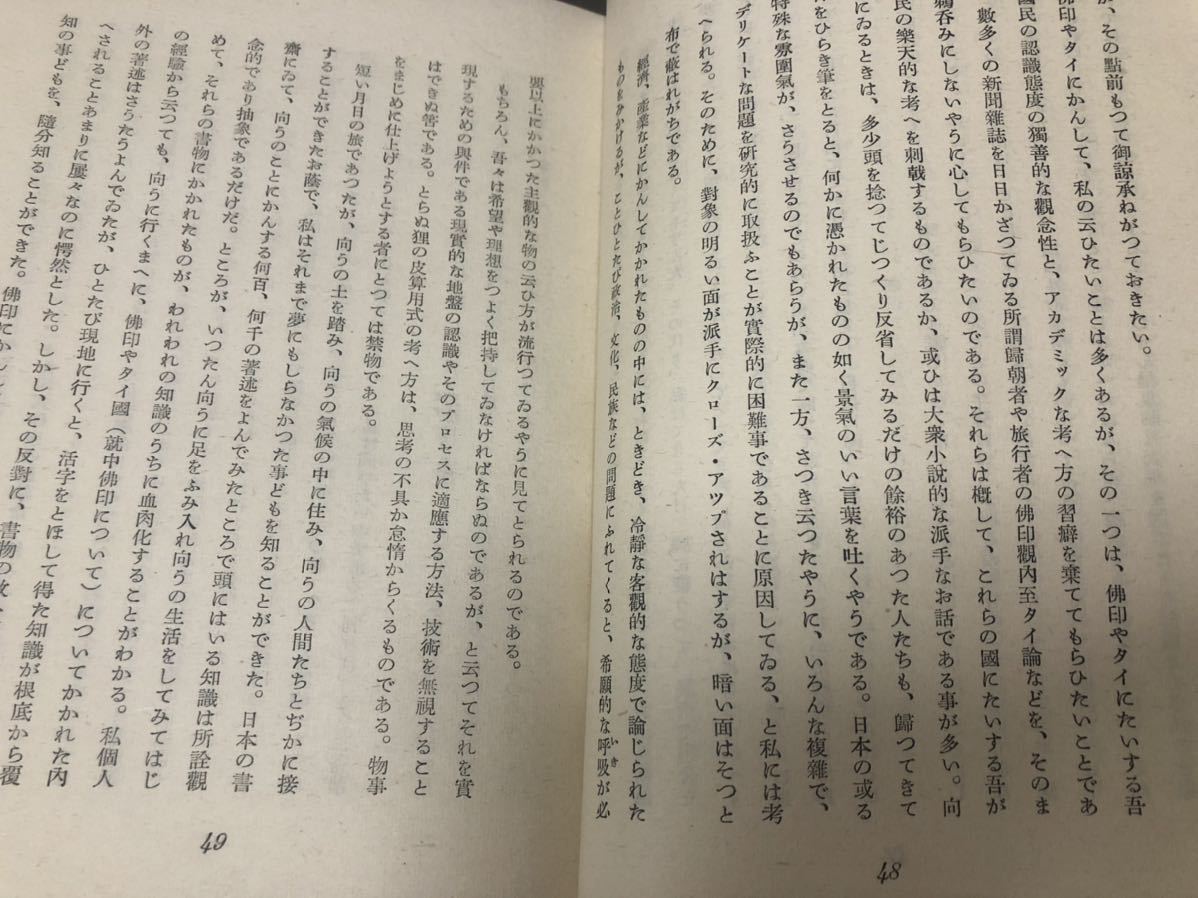 が、その點前もつて御諒承ねがつておきたい。
佛印やタイにかんして、私の云ひたいことは多くあるが、その一つは、佛印やタイにたいする吾
國民の認識態度の獨善的な觀念性と、アカデミックな考へ方の習癖を棄ててもらひたいことであ
數多くの新聞雜誌を日日かざつてゐる所謂歸朝者や旅行者の佛印觀內至タイ論などを、そのま
鵜呑みにしないやうに心してもらひたいのである。それらは槪して、これらの國にたいする吾が
民の樂天的な考へを刺戟するものであるか、或ひは大衆小說的な派手なお話である事が多い。向
にゐるときは、多少頭を捻つてじつくり反省してみるだけの餘裕のあつた人たちも、歸つてきて
をひらき筆をとると、何かに憑かれたものの如く景氣のいい言葉を吐くやうである。日本の或る
特殊な雰圍氣が、さうさせるのでもあらうが、また一方、さつき云つたやうに、いろんな複雜で、
デリケートな問題を硏究的に取扱ふことが實際的に困難事であることに原因してゐる、と私には考
へられる。そのために、對象の明るい面が派手にクローズ・アツプされはするが、暗い面はそつと
布で蔽はれがちである。
經濟、產業などにかんしてかかれたものの中には、ときどき、冷靜な客觀的な態度で論じられた
ものをみかけるが、ことひとたび政治、文化、民族などの問題にふれてくると、希願的な呼吸が必
いき
48
要以上にかかつた主觀的な物の云ひ方が流行つてゐるやうに見てとられるのである。
もちろん、吾々は希望や理想をつよく把持してゐなければならぬのであるが、と云つてそれを實
現するための與件である現實的な地盤の認識やそのプロセスに適應する方法、技術を無視すること
はできぬ筈である。とらぬ狸の皮算用式の考へ方は、思考の不具か怠惰からくるものである。物事
をまじめに仕上げようとする者にとつては禁物である。
短い月日の旅であつたが、向うの土を踏み、向うの氣候の中に住み、向うの人間たちとぢかに接
することができたお蔭で、私はそれまで夢にもしらなかつた事どもを知ることができた。日本の書
齋にゐて、向うのことにかんする何百、何千の著述をよんでみたところで頭にはいる知識は所詮觀
念的であり抽象であるだけだ。ところが、いつたん向うに足をふみ入れ向うの生活をしてみてはじ
めて、それらの書物にかかれたものが、われわれの知識のうちに血肉化することがわかる。私個人
の經驗から云つても、向うに行くまへに、佛印やタイ國（就中佛印について）についてかかれた內
外の著述はさうたうよんでゐたが、ひとたび現地に行くと、活字をとほして得た知識が根底から覆
へされることあまりに屢々なのに愕然とした。しかし、その反對に、書物の
知の事どもを、隨分知ることができた。佛印にか
49